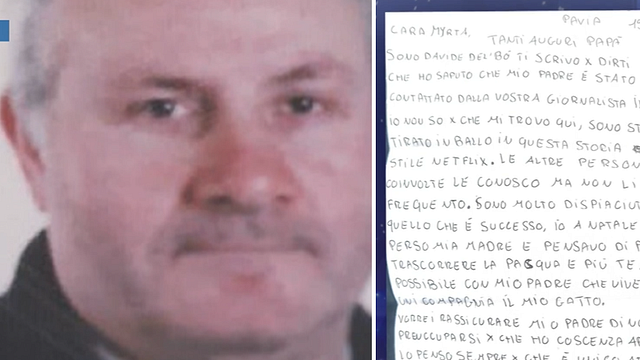 PAVIA 15
CARA MYRTA.
TANTI AUGURI PAPÀ
SONO DAVIDE DEL'BÓ TI SCRIVO X DIRTI
CHE HO SAPUTO CHE MIO PADRE È STATO
CONTATTATO DALLA VOSTRA GIORNALISTA I
IO NON SO X CHE MI TROVO QUI, SONO ST
TIRATO IN BALLO IN QUESTA STORIA
STILE NETFLIX. LE ALTRE PERSON
COINVOLTE LE CONOSCO MA NON LI
FREQUENTO. SONO MOLTO DISPIACIUT
QUELLO CHE È SUCCESSO, IO A NATALE
PERSO MIA MADRE E PENSAVO DI P
TRASCORRERE LA PASQUA E PIÙ TE
POSSIBILE CON MIO PADRE CHE VIVE
COMPAGNIA IL MIO GATTO.
VORREI RASSICURARE MIO PADRE DI NO
PREOCCUPARSI X CHE HO COSCENZA A
IO PENSO SEMPRE X CHE È UNICO